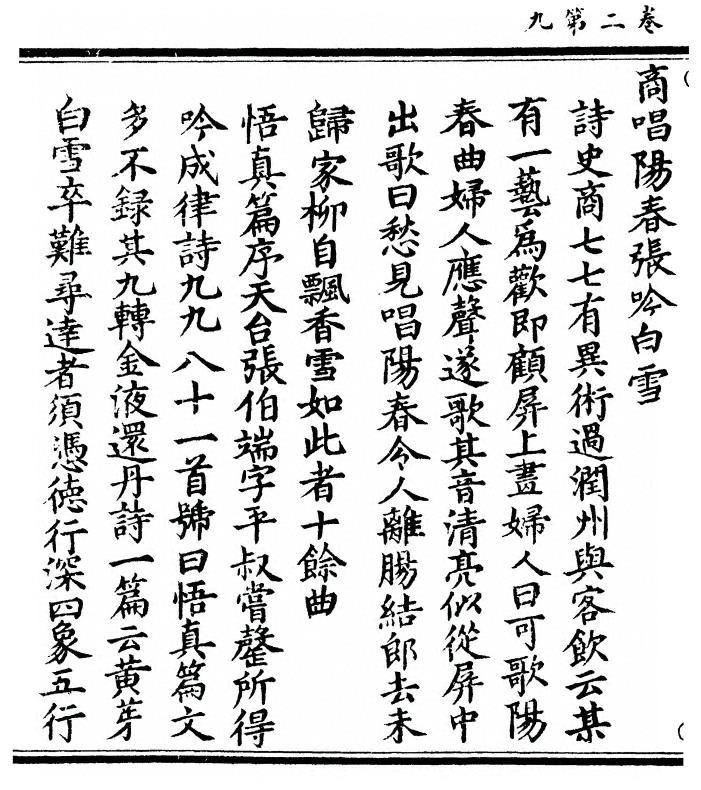 卷二第九
商唱陽春張吟白雪
詩史商七七有異術過潤州與客飲云某
有一藝爲歡即顧屏上畫婦人曰可歌陽
春曲婦人應聲遂歌其音清亮似從屏中
出歌曰愁見唱陽春令人離腸結郎去未
歸家柳自飄香雪如此者十餘曲
悟真篇序天台張伯端字平叔嘗罄所得
吟成律詩九九八十一首號曰悟真篇文
多不錄其九轉金液還丹詩一篇云黃芽
白雪卒難尋達者須憑德行深四象五行